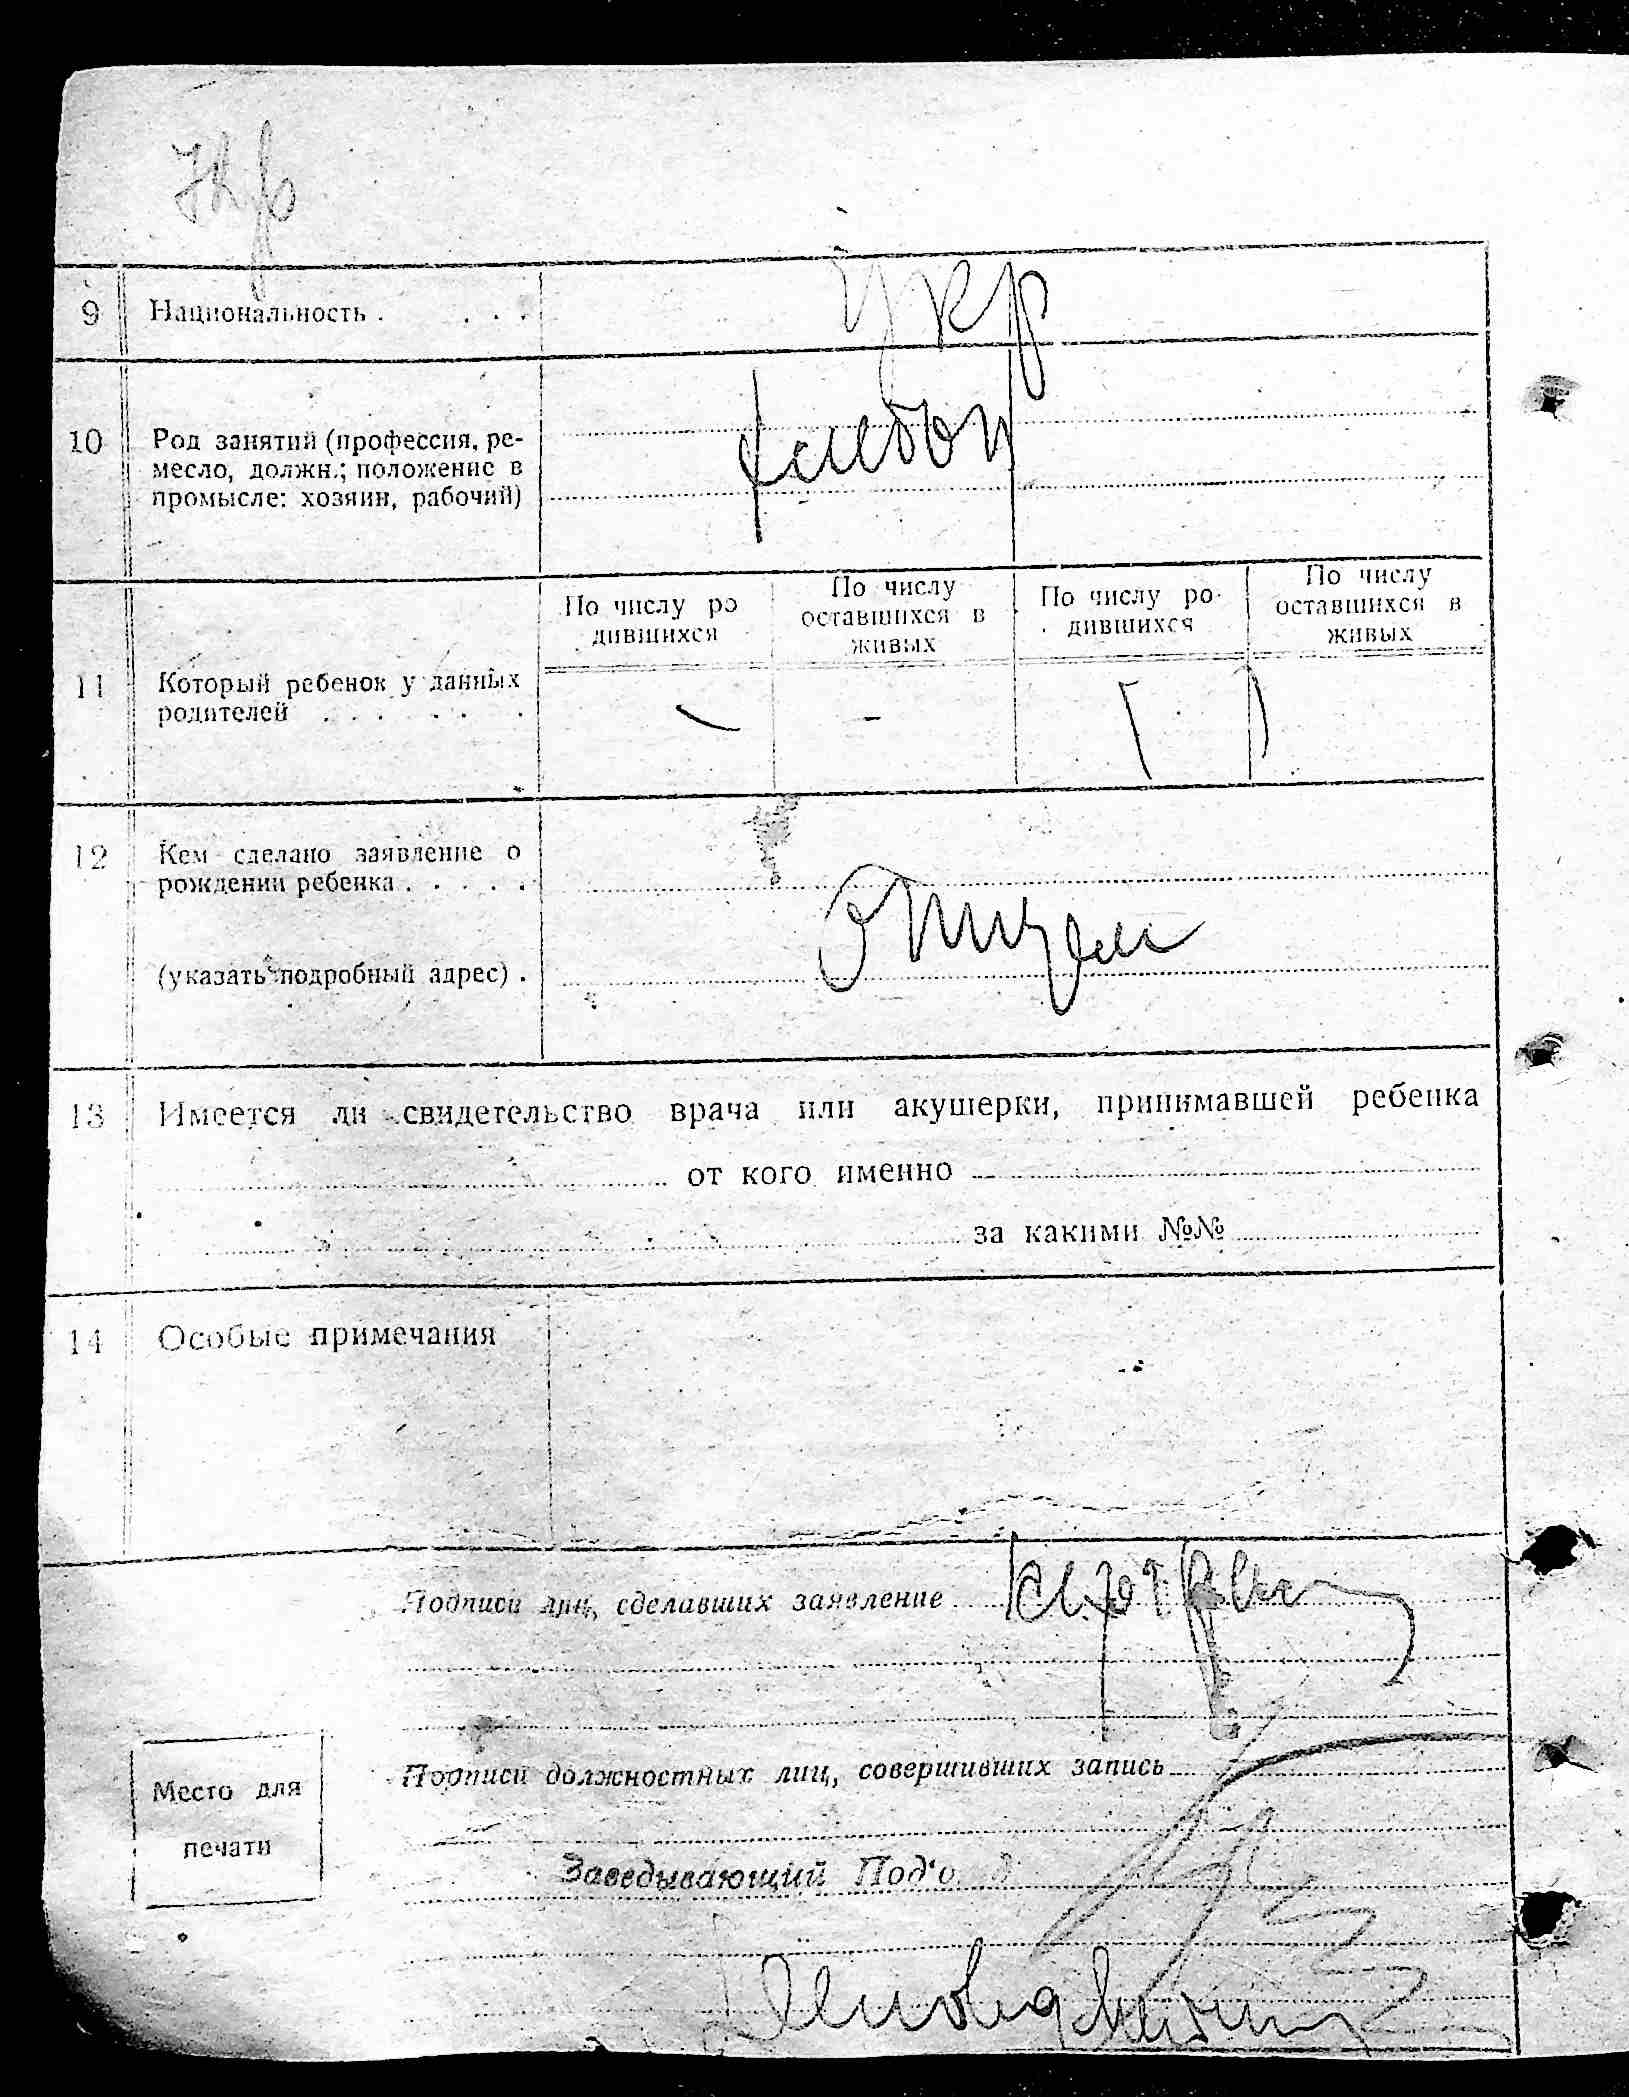 Укр
9 Национальность . . . . Укр
10 Род занятий (профессия, ре-
месло, должн.; положение в
промысле: хозяин, рабочий)
По числу ро
дившихся
По числу
оставшихся в
живых
По числу ро-
дившихся
По числу
оставшихся в
живых
11 Который ребенок у данных
родителей . . . . . .
12 Кем сделано заявление о
рождении ребенка . . . . .
(указать подробный адрес) .
13 Имеется ли свидетельство врача или акушерки, принимавшей ребенка
от кого именно
за какими №№
14 Особые примечания
Подписи лиц, сделавших заявление
Подписи должностных лиц, совершивших запись
Место для
печати
Заведывающий